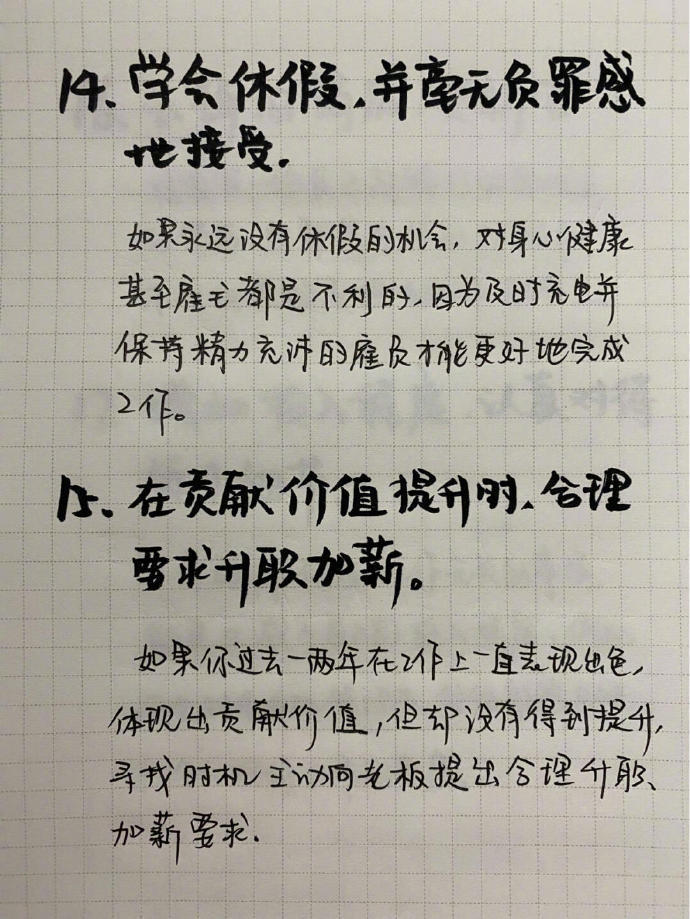 14. 学会休假,并毫无负罪感
地接受.
如果永远没有休假的机会, 对身心健康
甚至雇主都是不利的, 因为及时充电并
保持精力充沛的雇员才能更好地完成
工作。
15. 在贡献价值提升时, 合理
要求升职加薪。
如果你过去一两年在工作上一直表现出色,
体现出贡献价值, 但却没有得到提升,
寻找时机主动向老板提出合理升职、
加薪要求.